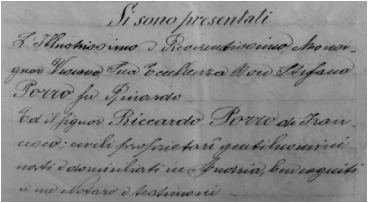 Si sono presentati
L'Illustrissimo e Reverendissimo Monsi-
gnor Vescovo Sua Eccellenza Don Stefano
Porro fu Rinardo
Ed il Signor Riccardo Porro de Fran-
cesco: civili proprietari gentiluomini
nati e domiciliati in Andria, ben cogniti
a me Notaro e testimonii